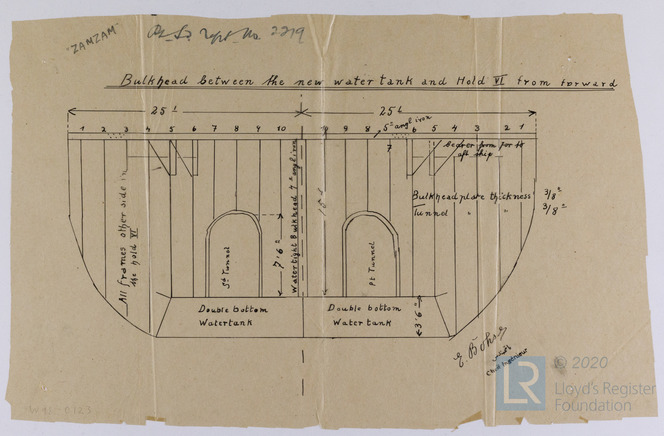 "ZAMZAM"
Rpt. No. 2219
Bulkhead between the new water tank and Hold VI from forward
25' 25'
1 2 3 4 5 6 7 8 9 10 10 9 8 7 6 5 4 3 2 1
5" angl iron
bearer from for to
aft ship
Bulkhead plate thickness 3/8"
Tunnel " " 3/8"
All frames other side in
the hold VI
St Tunnel
7'6"
Watertight Bulkhead 7" angl iron
Pt Tunnel
Double bottom
Watertank
Double bottom
Watertank
3'6"
Chief Engineer
LR
© 2020
Lloyd's Register
Foundation